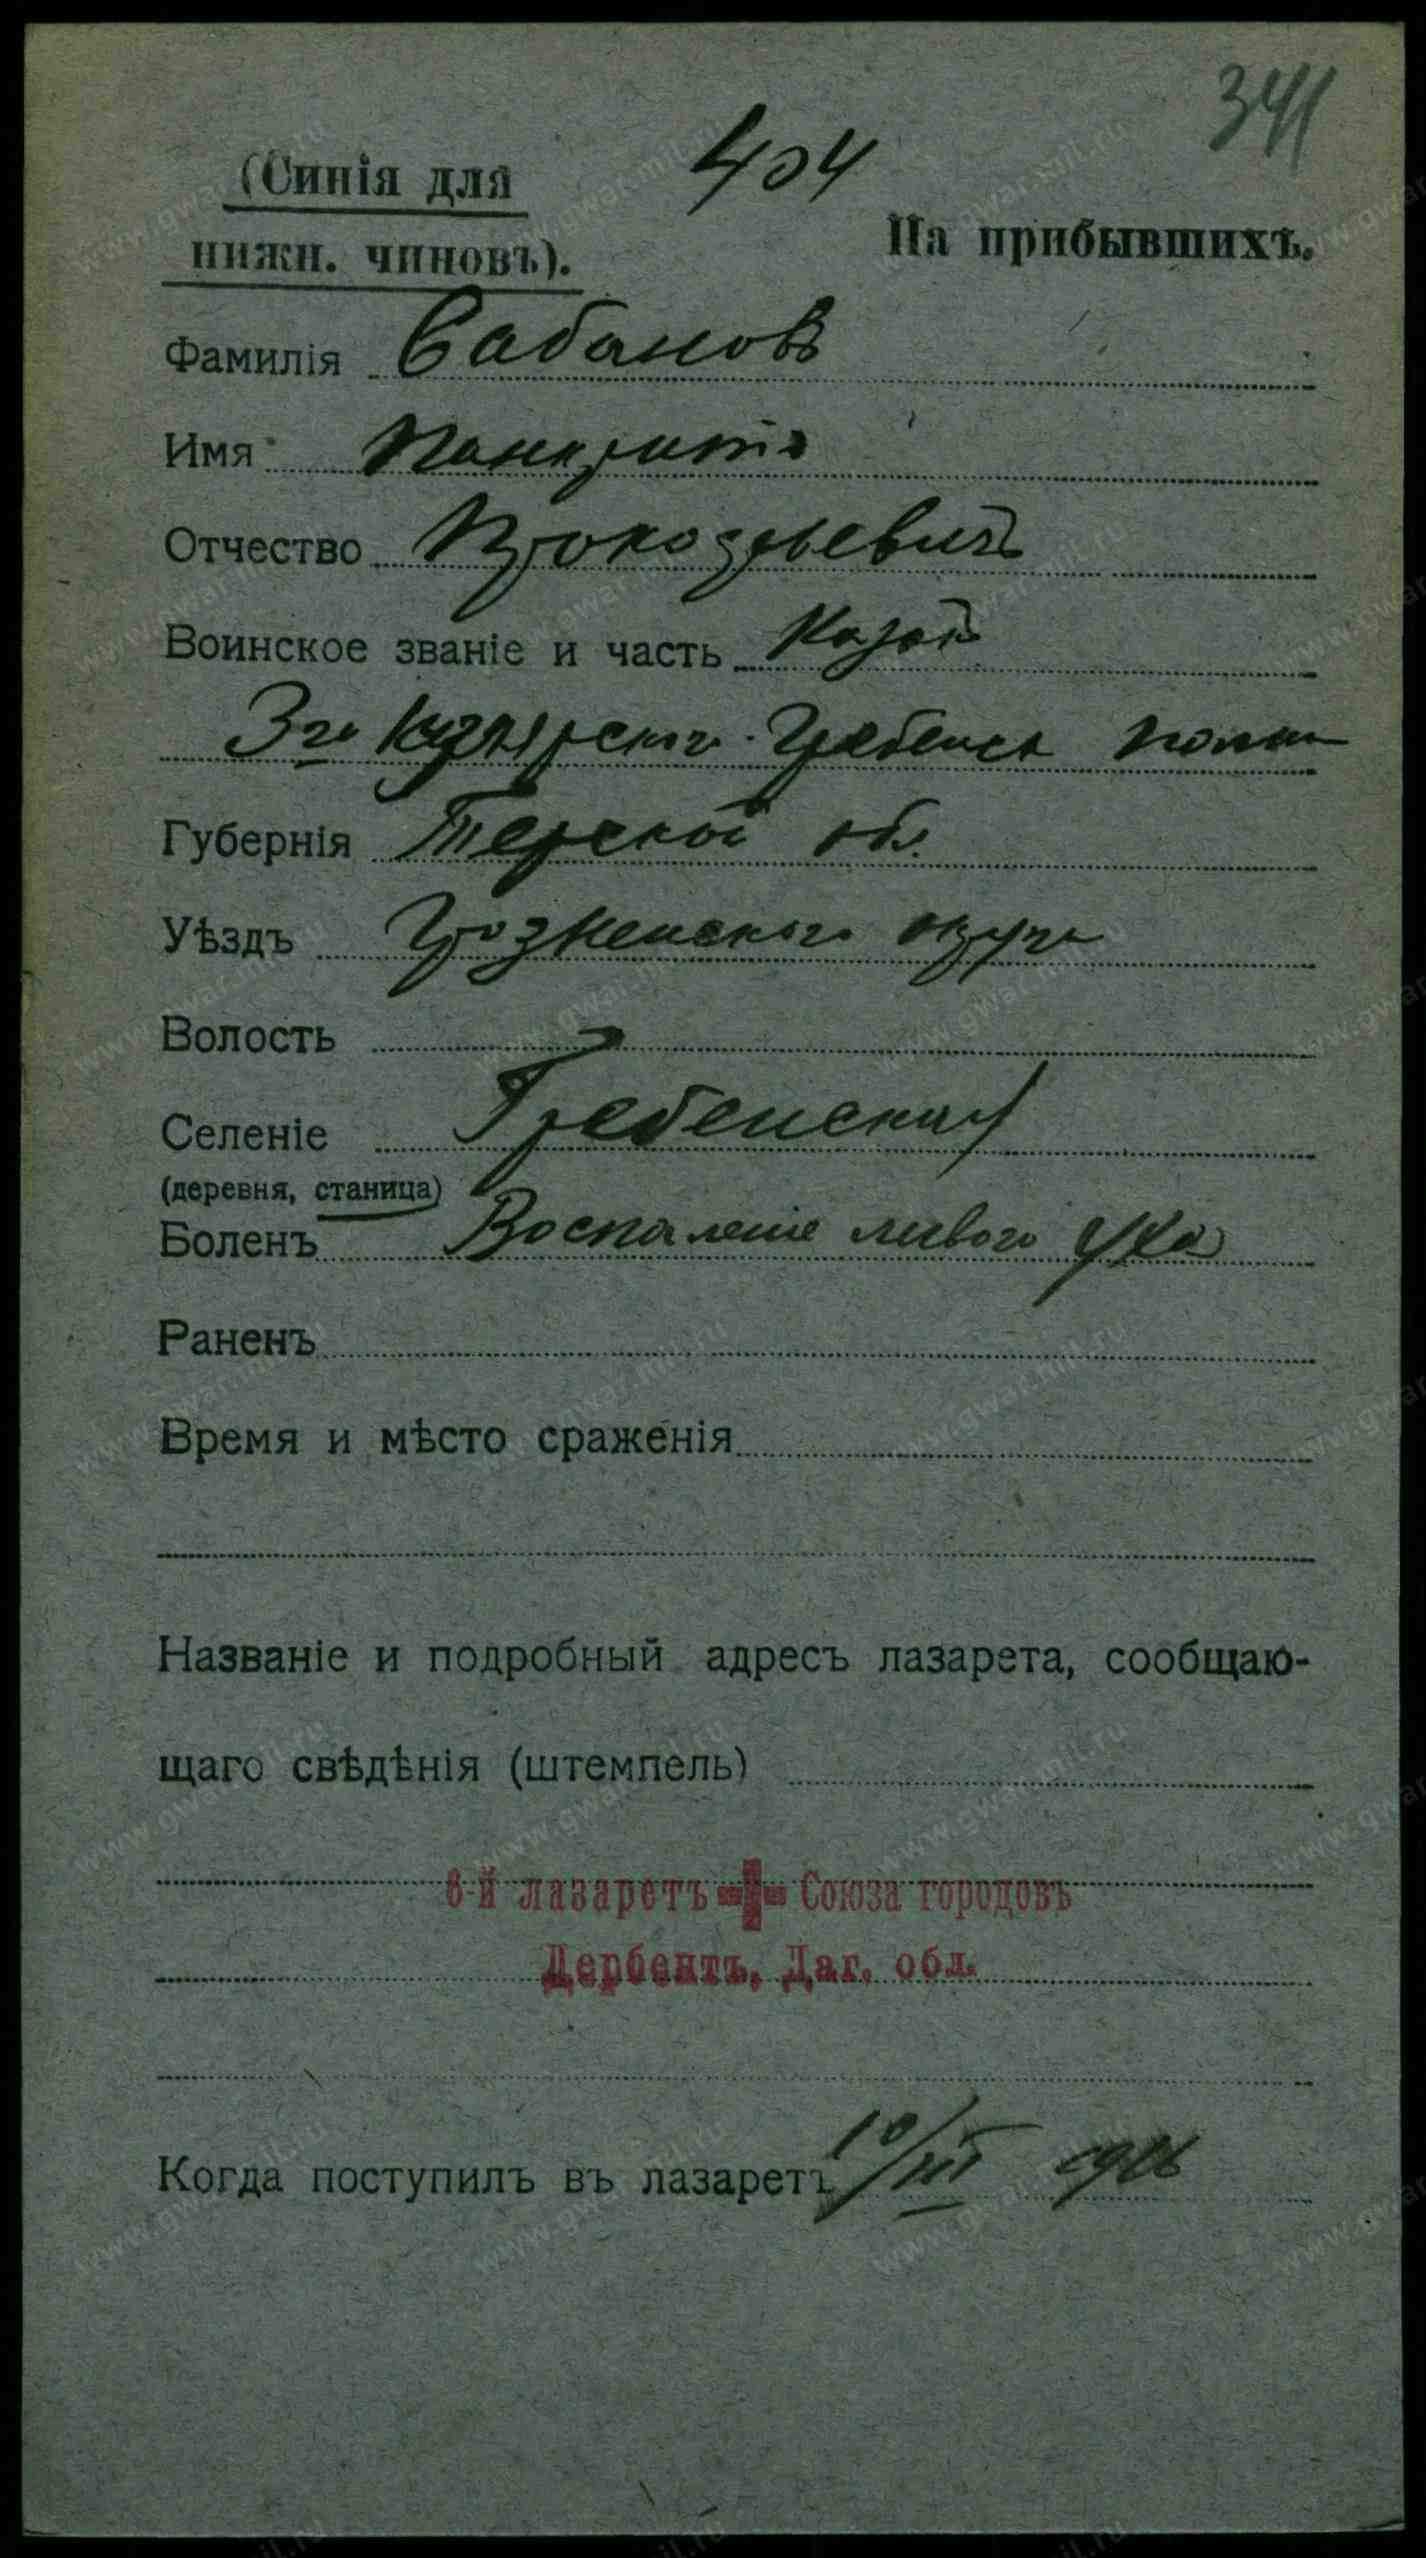 341
404
(Синія для
нижн. чиновъ).
На прибывшихъ.
Фамилія Сабановъ
Имя Панкратій
Отчество
Воинское званіе и часть Казакъ
3го Кизлярского-Гребенск полка
Губернія Терской обл.
Уѣздъ Грозненского округа
Волость
Селеніе Гребенская
(деревня, станица)
Боленъ Воспаление левого уха
Раненъ
Время и мѣсто сраженія
Названіе и подробный адресъ лазарета, сообщаю-
щаго свѣдѣнія (штемпель)
6-й лазаретъ Союза городовъ
Дербентъ, Даг. обл.
Когда поступилъ въ лазаретъ